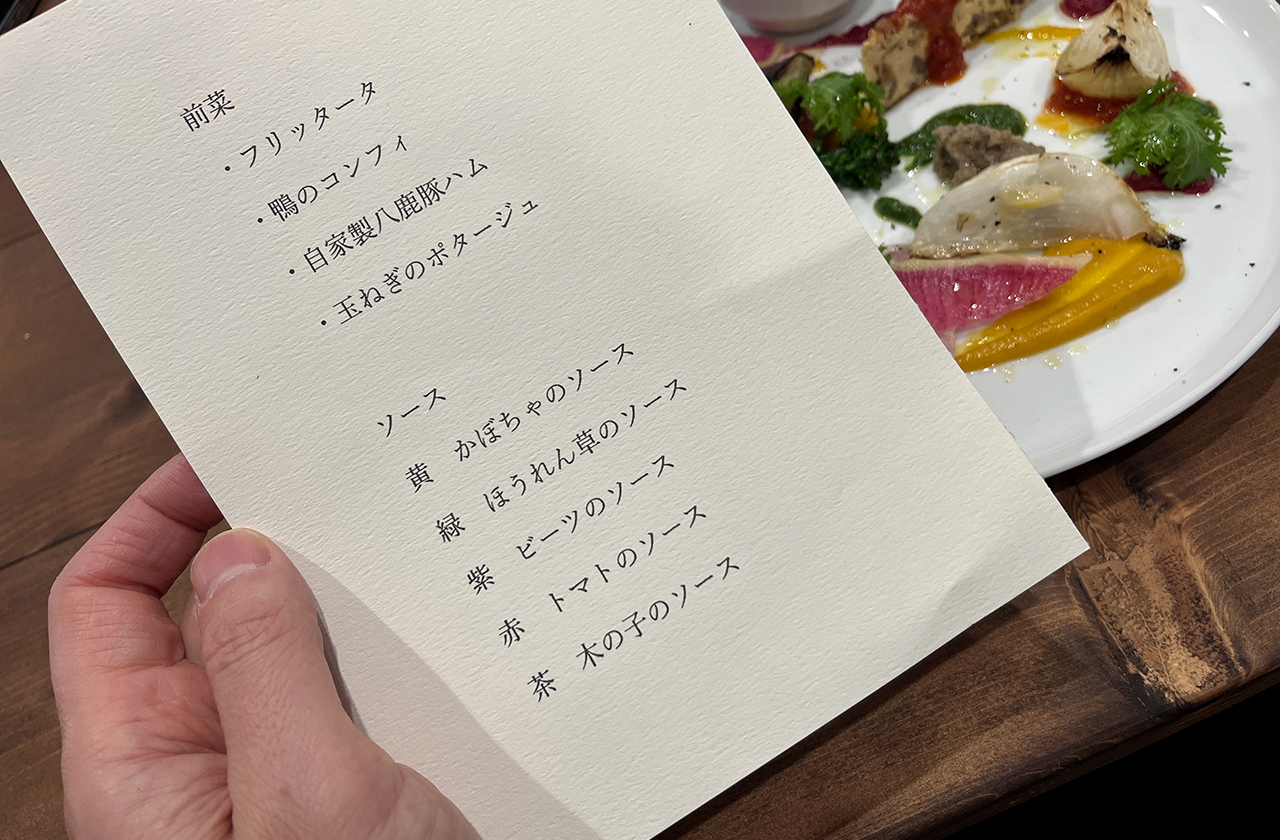 前菜
・フリッタータ
・鴨のコンフィ
・自家製八鹿豚ハム
・玉ねぎのポタージュ
ソース
黄 かぼちゃのソース
緑 ほうれん草のソース
紫 ビーツのソース
赤 トマトのソース
茶 木の子のソース